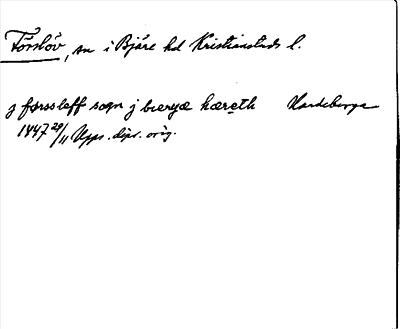 Förslöv, sn i Bjäre hd Kristianstads l.
j førssleff sogn j bieryæ hæreth Hardeberga
1447 29/11 Upps. dipl. orig.